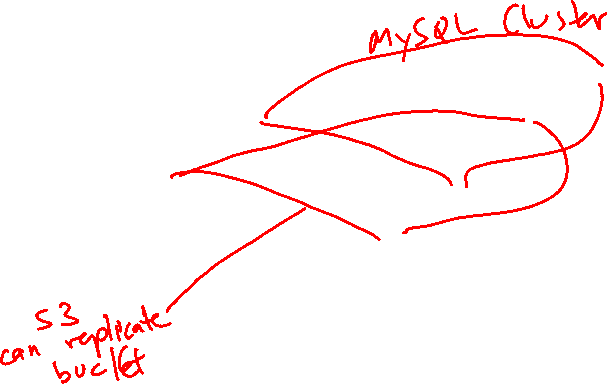 MySQL Cluster
S3
can replicate
bucket